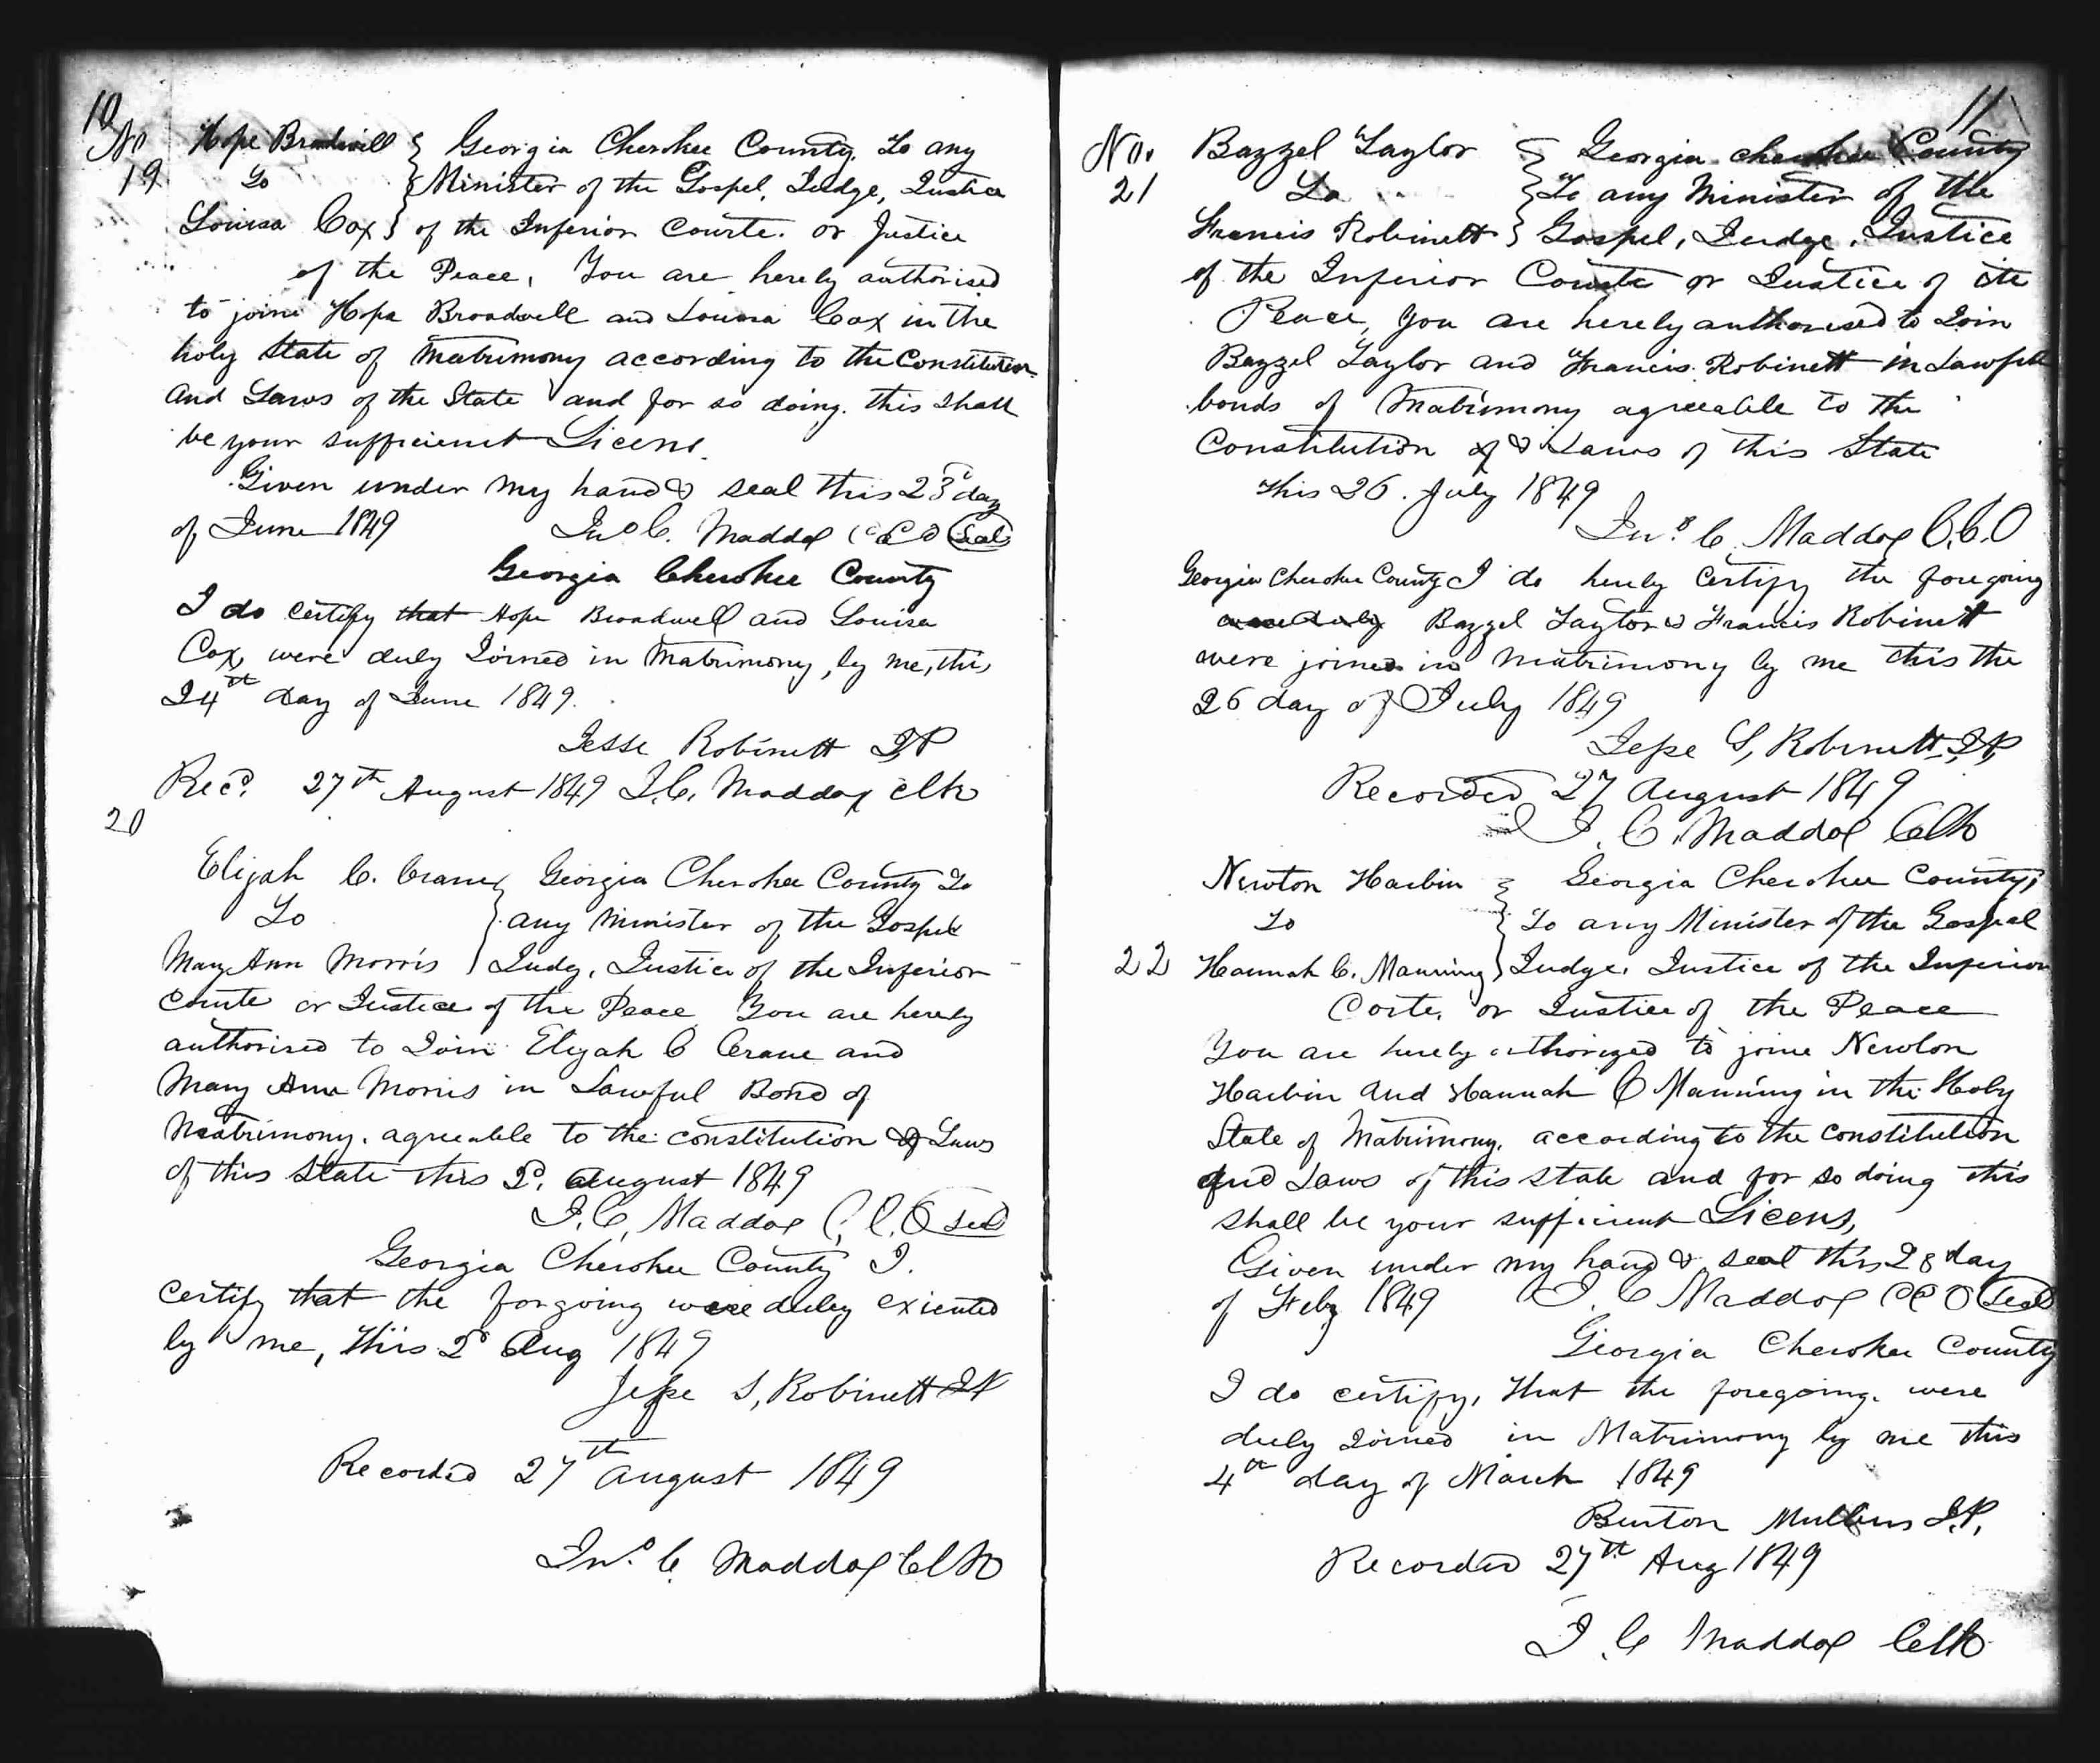 10
No
19
Hope Broadwell } Georgia Cherokee County. To any
To } Minister of the Gospel, Judge, Justice
Louisa Cox } of the Inferior Courte. or Justice
of the Peace, You are hereby authorised
to joine Hope Broadwell and Louisa Cox in the
holy State of Matrimony according to the Constitution
And Laws of the State and for so doing. this shall
be your sufficient Licens
Given under my hand & seal this 23d day
of June 1849 Jno C. Maddox CCO Seal
Georgia Cherokee County
I do certify that Hope Broadwell and Louisa
Cox, were duly Joined in Matrimony, by me, this
24th day of June 1849.
Jesse Robinett JP
Recd. 27th August 1849 J.C. Maddox Clk
20
Elijah C. Crane } Georgia Cherokee County To
To } any Minister of the Gospel
Mary Ann Morris } Judg, Justice of the Inferior
Counte or Justice of the Peace You are hereby
authorised to Join Elijah C Crane and
Mary Ann Morris in Lawful Bond of
Matrimony. agreeable to the constitution & Laws
of this State this 2d. August 1849
J.C. Maddox C.C.O Seal
Georgia Cherokee County I.
certify that the forgoing were duley exicuted
by me, this 2d Aug 1849
Jesse S, Robinett JP
Recorded 27th August 1849
Jno. C. Maddox Clk
11
No.
21
Bazzel Taylor } Georgia cherokee County
To } To any Minister of the
Francis Robinett } Gospel, Judge, Justice
of the Inferior Courte or Justice of the
Peace, you are hereby authorised to Join
Bazzel Taylor and Francis Robinett in Lawful
bonds of Matrimony agreeable to the
Constitution of & Laws of this State
this 26. July 1849
Jno. C. Maddox C.C.O
Georgia Cherokee County I do hereby certify the foregoing
were duly Bazzel Taylor & Francis Robinett
were joined in matrimony by me this the
26 day of July 1849
Jesse S, Robinett JP
Recorded 27 August 1849
J. C. Maddox Clk
Newton Harbin } Georgia Cherokee County,
To } To any Minister of the Gospal
22 Hannah C. Manning } Judge, Justice of the Inferior
Corte, or Justice of the Peace
You are hereby athorized to joine Newton
Harbin and Hannah C Manning in the Holy
State of Matrimony, according to the constitution
and Laws of this State and for so doing this
shall be your sufficient Licens,
Given under my hand & seal this 28 day
of Feby 1849 J. C Maddox CCO Seal
Georgia Cherokee County
I do certify, that the foregoing. were
duley Joined in Matrimony by me this
4th day of March 1849
Burton Mullins J.P.
Recorded 27th Aug 1849
J. C Maddox Clk